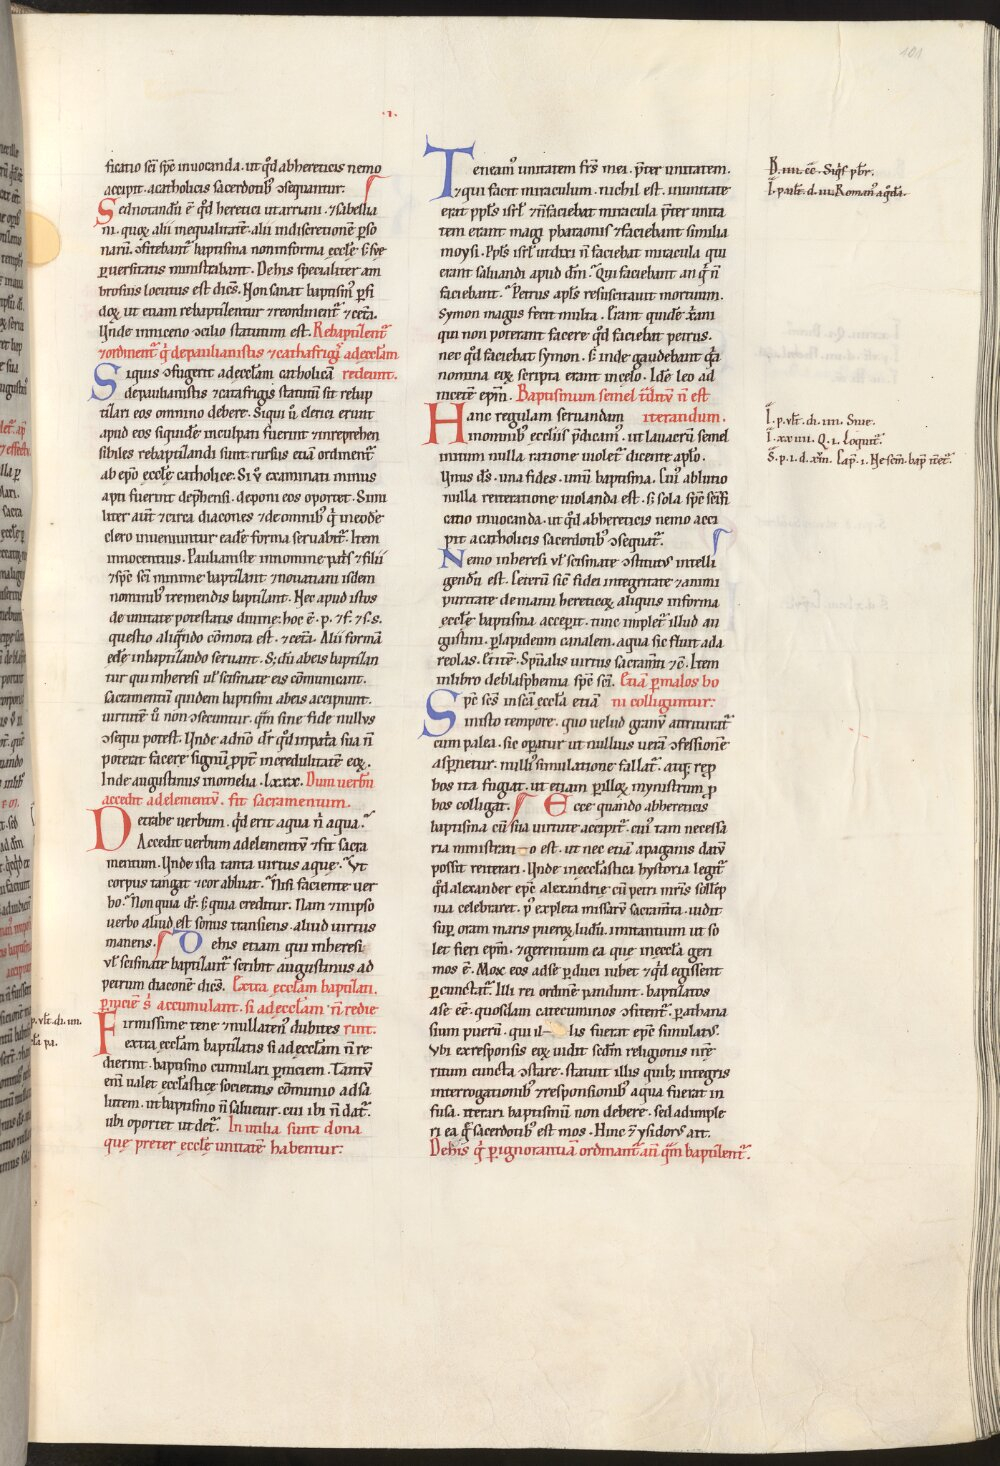 101
.I.
ficatio sc̄i sp̄c inuocanda. ut qđ abhereticis nemo
accipit. acatholicis sacerdotib; ꝯsequantur.
Sednotandū ē qđ heretici ut arriani. ⁊sabellia
ni. quoꝝ alii inequalitatē. alii indiscretionē pſo
narū ꝯfitebant̄ baptisma noninforma ęccłę s; suę
ꝑuersitatis ministrabant. Dehis specialiter am
brosius locutus est dicēs. Non sanat baptism̄ ꝑfi
doꝝ ut etiam rebaptizentur ⁊reordinent̄ ⁊cetā.
Unde inniceno ꝯcilio statutum est. Rebaptizent̄
⁊ordinent̄ q̇ depaulianistis ⁊catafrigis adeccłam
Siquis ꝯfugerit adeccłam catholicā redeunt.
depaulianistis ⁊catafrigis statutū sit rebap
tizari eos omnino debere. Siqui ů clerici erunt
apud eos siquidē inculpati fuerint ⁊inreprehen
sibiles rebaptizandi sunt. rursus etiā ordinent̄
ab ep̄o ęccłę catholicę. Si ů examinati minus
apti fuerint dep̄hensi. deponi eos oportet. Simi
liter aut̄ ⁊circa diacones ⁊deomnib; q̇ ineodē
clero inueniuntur eadē forma seruabit̄. Item
innocentius. Paulianistę innomine pat̄s ⁊filii
⁊sp̄c sc̄i minime baptizant. ⁊nouatiani isdem
nominib; tremendis baptizant. Nec apud istos
de unitate potestatis diuinę. hoc ē. p. ⁊f. ⁊s. s.
questio aliqn̄do cōmota est. ⁊cetā. Alii formā
eđē inbaptizando seruant. S; cū abeis baptizan
tur qui inheresi uł scismate eis cōmunicant.
sacramentū quidem baptismi abeis accipiunt.
uirtutē ů non ꝯsecuntur. qm̄ sine fide nullus
ꝯsequi potest. Unde adn̄o dr̄ qđ inpat̄a sua n̄
poterat facere signū ppt̄ incredulitatē eoꝝ.
Inde augustinus inomelia. lxxx. Dum uerbū
accedit adelementū. fit sacramentum.
Detrahe uerbum. qđ erit aqua n̄ aqua.
Accedit uerbum adelementū ⁊fit sacra
mentum. Unde ista tanta uirtus aque. Vt
corpus tangat ⁊cor abluat. Nisi faciente uer
bo. Non quia dr̄. s; quia creditur. Nam ⁊inipso
uerbo aliud est sonus transiens. aliud uirtus
manens. Dehis etiam qui inheresi
uł scismate baptizant̄ scribit augustinus ad
petrum diaconē dicēs. Extra ęccłam baptizati.
ꝑniciē s; accumulant. si adęccłam n̄ redie
Firmissime tene ⁊nullaten; dubites rint.
extra eccłam baptizatis si adeccłam n̄ re
dierint. baptismo cumulari ꝑniciem. Tantū
enī ualet eccłasticę societatis cōmunio adsa
lutem. ut baptismo n̄ saluetur. cui ibi n̄ dat̄.
ubi oportet ut det̄. Inutilia sunt dona
quę preter eccłę unitatē habentur.
p. ult̄. ch. iiii.
Teneam; unitatem fr̄s mei. p̄ter unitatem.
⁊qui facit miraculum. nichil est. inunitate
erat ppls isrł ⁊n̄faciebat miracula p̄ter unita
tem erant magi pharaonis ⁊faciebant similia
moysi. Ppls isrł ut dixi n̄ faciebat miracula qui
erant saluandi apud dm̄. Qui faciebant an q̇ n̄
faciebant. Petrus apls resuscitauit mortuum.
Symon magus fecit multa. Erant quidē xani
qui non poterant facere qđ faciebat petrus.
nec qđ faciebat symon. s; inde gaudebant q̇a
nomina eoꝝ scripta erant incęlo. Idē leo ad
nicetē ep̄m. Baptismum semel n̄ est
Hanc regulam seruandam iterandum.
inomnib; ecclīis p̄dicam;. ut lauacrū semel
initum nulla ratione uiolet̄. dicente apło.
Unus dn̄s. una fides. unū baptisma. Cui; ablutio
nulla reiteratione uiolanda est. s; sola sp̄c sc̄ifi
catio inuocanda. ut qđ abhereticis nemo acci
pit acatholicis sacerdotib; ꝯsequat̄.
Nemo inheresi uł scismate ꝯstitut; intelli
gendū est. Ceterū sicē fidei integritate ⁊animi
puritate demanu hereticoꝝ aliquis informa
ęccłę baptisma accepit. tunc implet̄ illud au
gustini. ꝑlapideum canalem. aqua sic fluit ada
reolas. Et itē. Spūalis uirtus sacram̄ti ⁊c̄. Item
inlibro deblasphemia sp̄c sc̄i. Etiā ꝑmalos bo
Sp̄c sc̄s insc̄a eccła etiā ni colliguntur.
inisto tempore. quo uelud granū attriturat̄
cum palea. sic opatur ut nullius uerā ꝯfessionē
aspnetur. nulli; simulatione fallat̄. atq; rep̄
bos ita fugiat. ut etiam ꝑilloꝝ mynistrum p̄
bos colligat. Ecce quando abhereticis
baptisma cū sua uirtute accipit̄. cui; tam necessa
ria ministratio est. ut nec etiā apaganis datū
possit reiterari. Unde inecclāstica hystoria legit̄
qđ alexander ep̄c alexandrię cū petri mr̄is sollep
nia celebraret. p; expleta missarū sacram̄ta. uidit
sup̄ oram maris pueroꝝ ludū. imitantium ut so
let fieri ep̄m. ⁊gerentium ea que ineccła geri
mos ē. Mox eos adse ꝑduci iubet ⁊qđ egissent
ꝑcunctat̄. Illi rei ordinē pandunt. baptizatos
ase eē. quosdam catecuminos ꝯfitent̄. ꝑathana
sium puerū. qui illis fuerat ep̄c simulatus.
Ubi exresponsis eoꝝ uidit scd̄m religionis nr̄ę
ritum cuncta ꝯstare. statuit illis quib; integris
interrogationib; ⁊responsionib; aqua fuerat in
fusa. iterari baptismū non debere. sed adimple
ri ea q̄ sacerdotib; est mos. Hinc ⁊ ysidorus ait.
Dehis q̇ ꝑignorantiā ordinant̄ an̄ qm̄ baptizent̄.
B. iiii. cē. Siq̇s pbr̄.
I. part̄. d. iii. Roman; ag̃dā.
I. p. ult̄. ch. iiii. Siue.
I. xxiiii. Q. i. loquit̄.